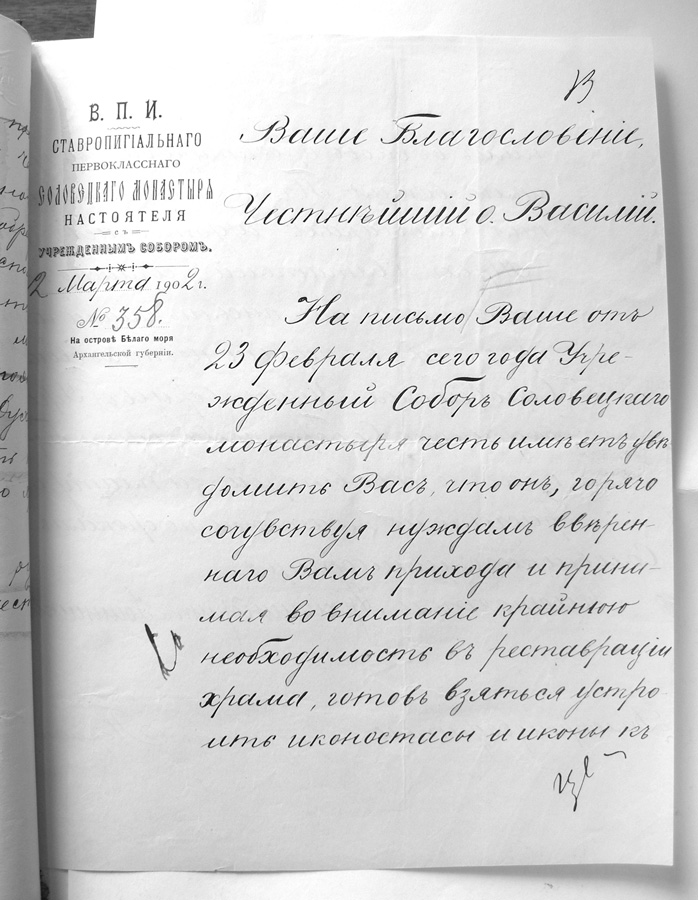 В. П. И.
СТАВРОПИГІАЛЬНАГО
ПЕРВОКЛАССНАГО
СОЛОВЕЦКАГО МОНАСТЫРЯ
НАСТОЯТЕЛЯ
СЪ
УЧРЕЖДЕННЫМЪ СОБОРОМЪ.
2 Марта 1902 г.
№ 358.
На островѣ Бѣлаго моря
Архангельской губерніи.
Ваше Благословеніе,
Честнѣйшій о. Василій.
На письмо Ваше отъ
23 февраля сего года Учре-
жденный Соборъ Соловецкаго
монастыря честь имѣетъ увѣ
домить Васъ, что онъ, горячо
сочувствуя нуждамъ ввѣрен-
наго Вамъ прихода и прини-
мая во вниманіе крайнюю
необходимость въ реставраціи
храма, готовъ взяться устро
ить иконостасы и иконы къ